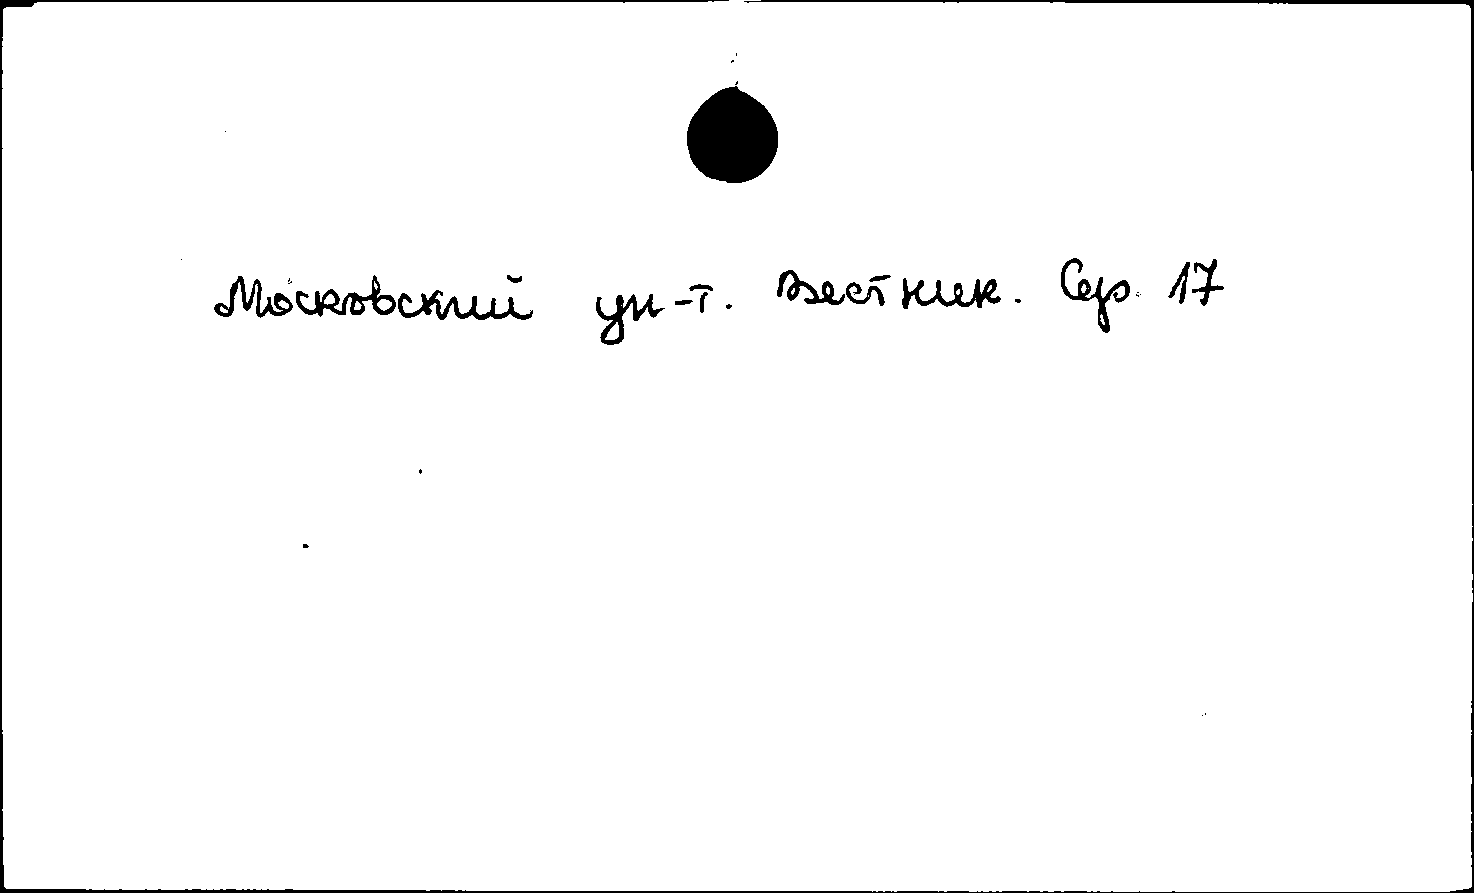 Московский ун-т. Вестник. Сер. 17